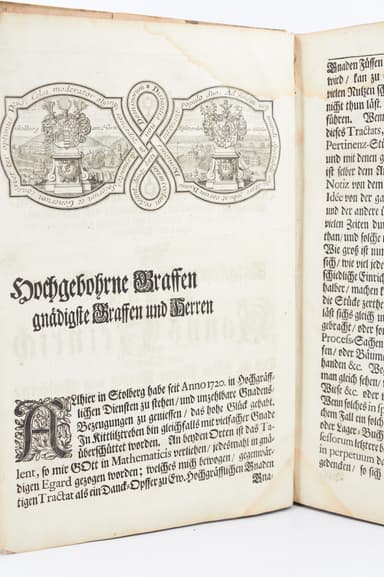 Hochgebohrne Graffen
gnädigste Graffen und Herren
Allhier in Stolberg habe seit Anno 1720. in Hochgräff-
lichen Diensten zu stehen/ und unzehlbare Gnadens-
Bezeugungen zu geniessen/ das hohe Glück gehabt.
In Kittlitztreben bin gleichfalls mit vielfacher Gnade
überschüttet worden. An beyden Orten ist das Ta-
lent, so mir GOtt in Mathematicis verliehen/ jedesmahl in gnä-
digen Egard gezogen worden; welches mich bewogen/ gegenwär-
tigen Tractat als ein Danck-Opffer zu Ew. Hochgräfflichen Gnaden
Gna-
Gnaden Füssen
wird/ kan zu
vielen Nutzen sch
nicht thun läst.
führen. Wenn
dieses Tractats,
Pertinenz-Stü
und mit denen g
ist selber dem A
Notiz von dem
Idée von der ga
und der andere ü
vielen Zeiten du
than/ und solche
Wie groß ist nun
sich/ wie viel jede
schiedliche Einrich
halber/ machen k
die Stücke zerthe
läst sichs gleich
gebracht/ oder so
Process-Sachen
fen/ oder Bäum
handen &c. We
man gleich sehen/
Wiese &c. oder
Wenn solches in
hem Fall ein solch
oder Lager-Buch
sessorum letztere b
in perpetuum da
gedencken/ so sich